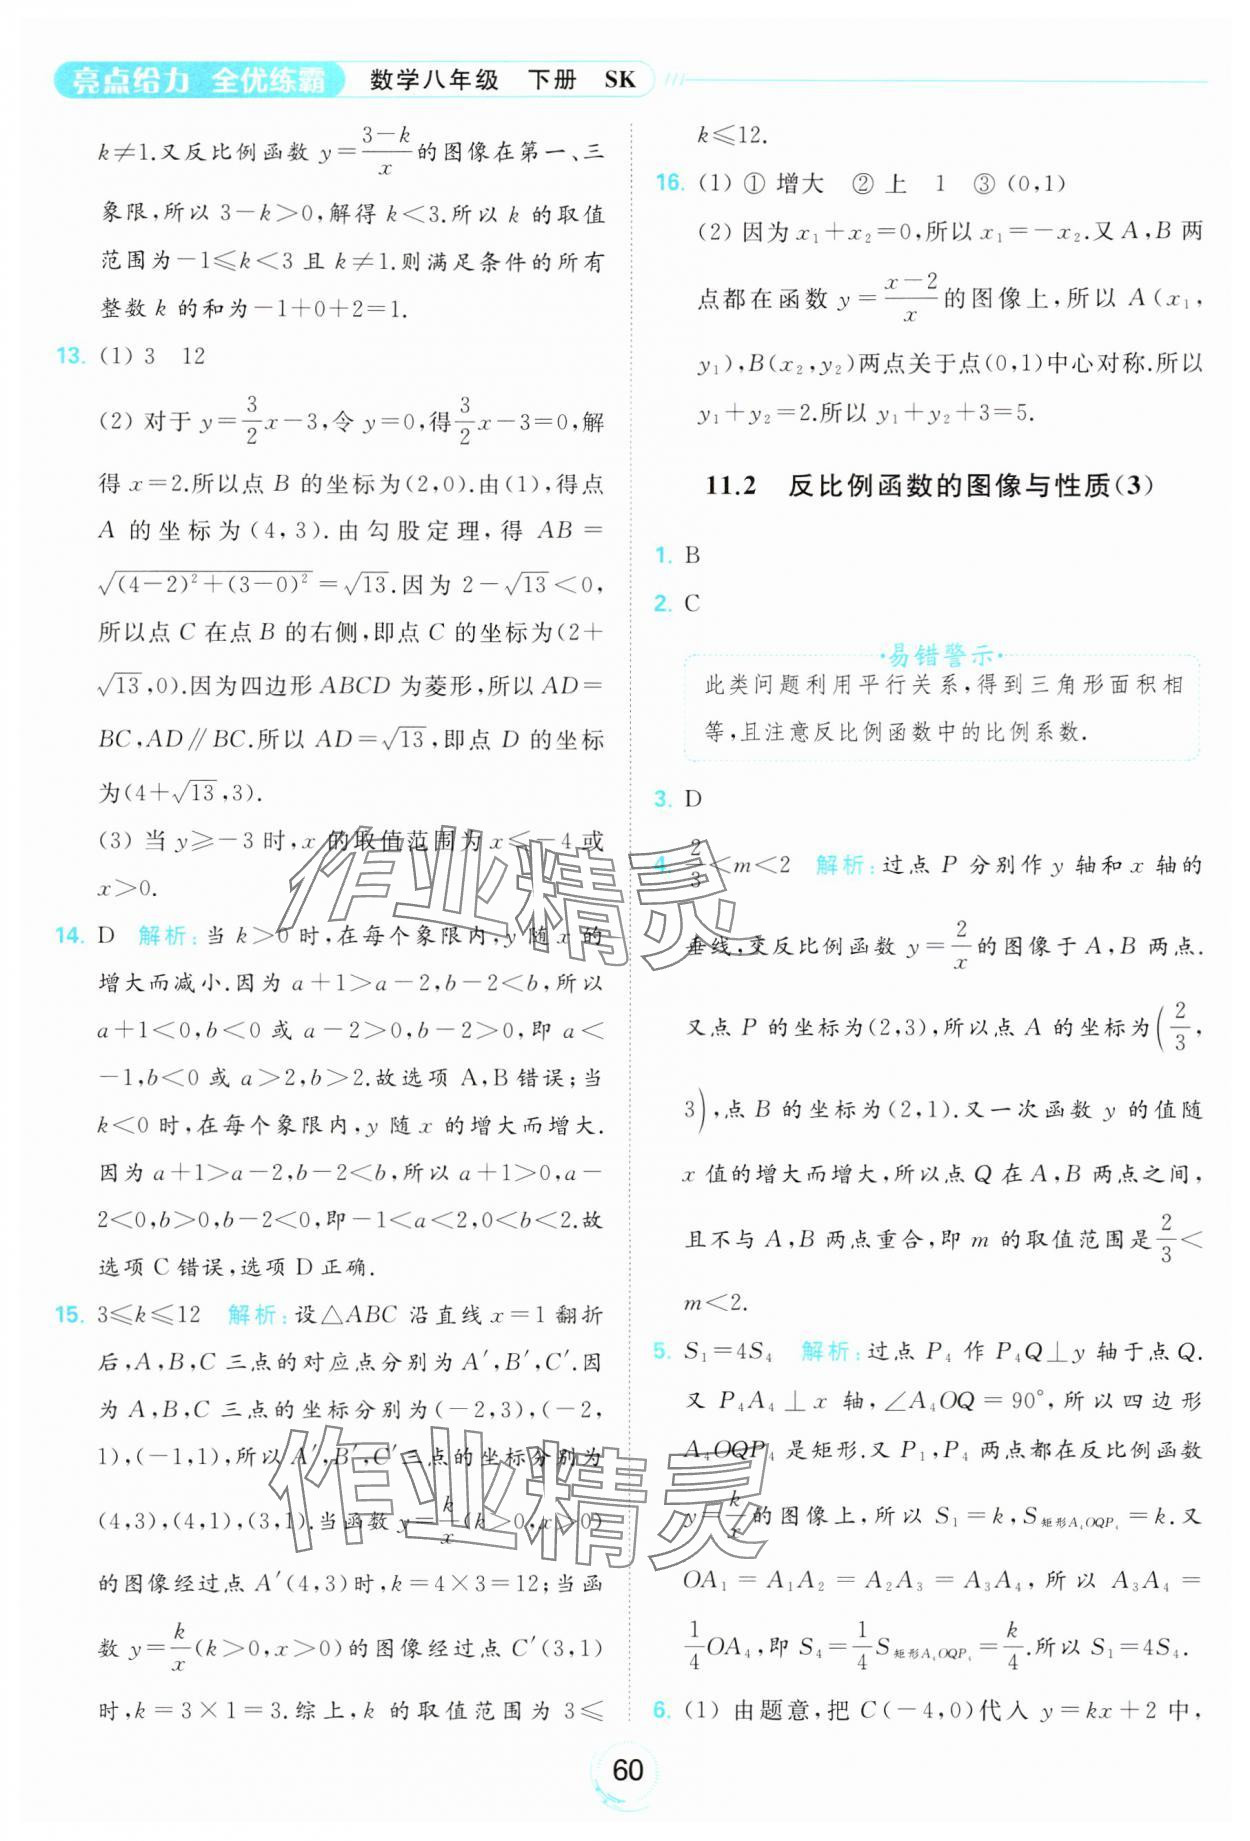 亮点给力 全优练霸 数学八年级 下册 SK
k≠1.又反比例函数 y=\frac{3-k}{x}的图像在第一、三
象限,所以 3-k>0,解得 k<3.所以 k 的取值
范围为-1≤k<3 且 k≠1.则满足条件的所有
整数 k 的和为-1+0+2=1.
13. (1) 3 12
(2) 对于 y=\frac{3}{2}x-3,令 y=0,得\frac{3}{2}x-3=0,解
得 x=2.所以点 B 的坐标为(2,0).由(1),得点
A 的坐标为(4,3).由勾股定理,得 AB=
\sqrt{(4-2)²+(3-0)²}=\sqrt{13}.因为 2-\sqrt{13}<0,
所以点 C 在点 B 的右侧,即点 C 的坐标为(2+
\sqrt{13},0).因为四边形 ABCD 为菱形,所以 AD=
BC,AD∥BC.所以 AD=\sqrt{13},即点 D 的坐标
为(4+\sqrt{13},3).
(3) 当 y≥-3 时,x 的取值范围为 x≤-4 或
x>0.
14. D 解析:当 k>0 时,在每个象限内,y 随 x 的
增大而减小.因为 a+1>a-2,b-2<b,所以
a+1<0,b<0 或 a-2>0,b-2>0,即 a<
-1,b<0 或 a>2,b>2.故选项 A,B 错误;当
k<0 时,在每个象限内,y 随 x 的增大而增大.
因为 a+1>a-2,b-2<b,所以 a+1>0,a-
2<0,b>0,b-2<0,即-1<a<2,0<b<2.故
选项 C 错误,选项 D 正确.
15. 3≤k≤12 解析:设△ABC 沿直线 x=1 翻折
后,A,B,C 三点的对应点分别为 A′,B′,C′.因
为 A,B,C 三点的坐标分别为(-2,3),(-2,
1),(-1,1),所以 A′,B′,C′三点的坐标分别为
(4,3),(4,1),(3,1).当函数 y=\frac{k}{x}(k>0,x>0)
的图像经过点 A′(4,3)时,k=4×3=12;当函
数 y=\frac{k}{x}(k>0,x>0)的图像经过点 C′(3,1)
时,k=3×1=3.综上,k 的取值范围为 3≤
k≤12.
16. (1) ① 增大 ② 上 1 ③ (0,1)
(2) 因为 x₁+x₂=0,所以 x₁=-x₂.又 A,B 两
点都在函数 y=\frac{x-2}{x}的图像上,所以 A(x₁,
y₁),B(x₂,y₂)两点关于点(0,1)中心对称.所以
y₁+y₂=2.所以 y₁+y₂+3=5.
11.2 反比例函数的图像与性质(3)
1. B
2. C
·易错警示·
此类问题利用平行关系,得到三角形面积相
等,且注意反比例函数中的比例系数.
3. D
4. \frac{2}{3}<m<2 解析:过点 P 分别作 y 轴和 x 轴的
垂线,交反比例函数 y=\frac{2}{x}的图像于 A,B 两点.
又点 P 的坐标为(2,3),所以点 A 的坐标为(\frac{2}{3},
3),点 B 的坐标为(2,1).又一次函数 y 的值随
x 值的增大而增大,所以点 Q 在 A,B 两点之间,
且不与 A,B 两点重合,即 m 的取值范围是\frac{2}{3}<
m<2.
5. S₁=4S₄ 解析:过点 P₄ 作 P₄Q⊥y 轴于点 Q.
又 P₄A₄⊥x 轴,∠A₄OQ=90°,所以四边形
A₄OQP₄ 是矩形.又 P₁,P₄ 两点都在反比例函数
y=\frac{k}{x}的图像上,所以 S₁=k,S_{矩形A₄OQP₄}=k.又
OA₁=A₁A₂=A₂A₃=A₃A₄,所以 A₃A₄=
\frac{1}{4}OA₄,即 S₄=\frac{1}{4}S_{矩形A₄OQP₄}=\frac{k}{4}.所以 S₁=4S₄.
6. (1) 由题意,把 C(-4,0)代入 y=kx+2 中,
作业精灵
作业精灵
60